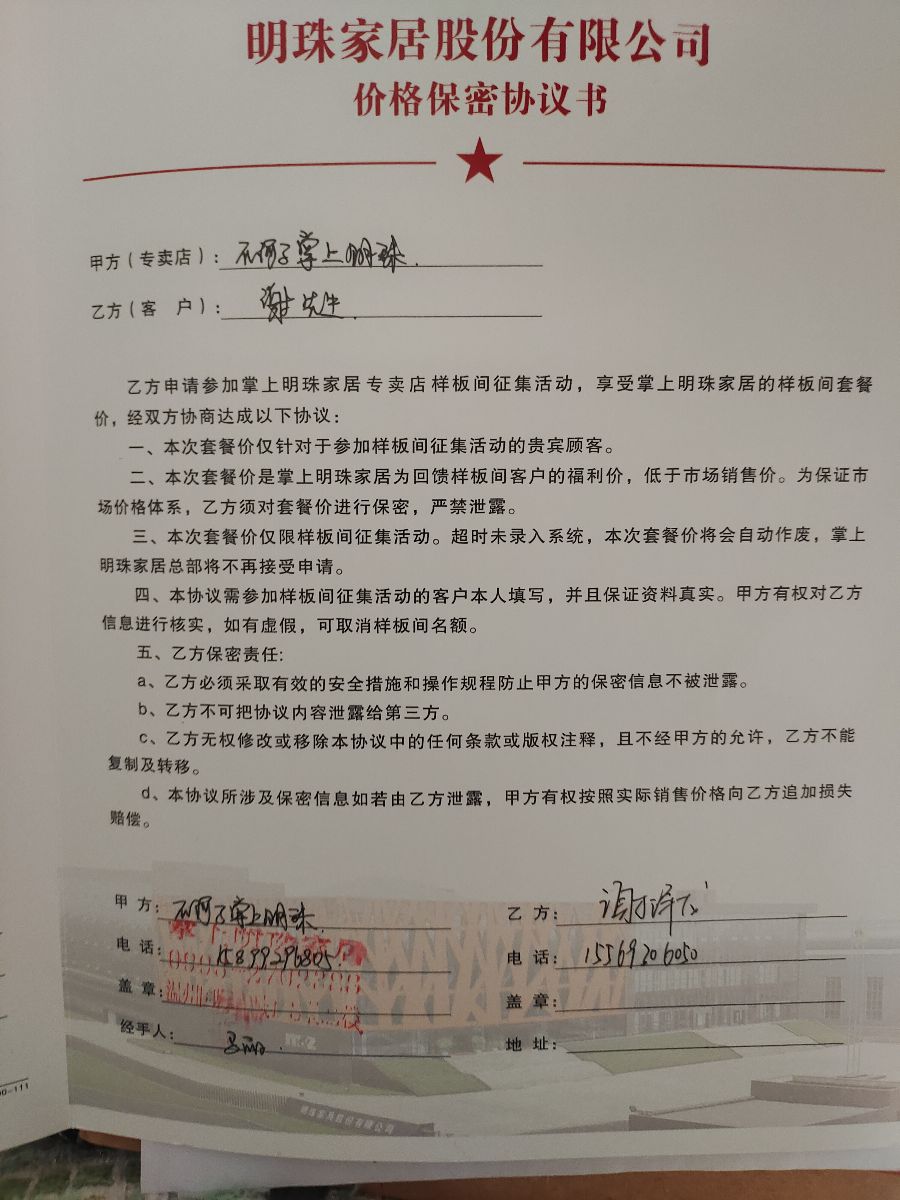 明珠家居股份有限公司
价格保密协议书
甲方(专卖店): 石河子掌上明珠.
乙方(客 户): 谢先生.
乙方申请参加掌上明珠家居专卖店样板间征集活动,享受掌上明珠家居的样板间套餐
价,经双方协商达成以下协议:
一、本次套餐价仅针对于参加样板间征集活动的贵宾顾客。
二、本次套餐价是掌上明珠家居为回馈样板间客户的福利价,低于市场销售价。为保证市
场价格体系,乙方须对套餐价进行保密,严禁泄露。
三、本次套餐价仅限样板间征集活动。超时未录入系统,本次套餐价将会自动作废,掌上
明珠家居总部将不再接受申请。
四、本协议需参加样板间征集活动的客户本人填写,并且保证资料真实。甲方有权对乙方
信息进行核实,如有虚假,可取消样板间名额。
五、乙方保密责任:
a、乙方必须采取有效的安全措施和操作规程防止甲方的保密信息不被泄露。
b、乙方不可把协议内容泄露给第三方。
c、乙方无权修改或移除本协议中的任何条款或版权注释,且不经甲方的允许,乙方不能
复制及转移。
d、本协议所涉及保密信息如若由乙方泄露,甲方有权按照实际销售价格向乙方追加损失
赔偿。
甲方: 石河子掌上明珠. 乙方: 谢泽
电话: 15899296805. 电话: 15569306050
盖章: 盖章:
经手人: 马丽. 地址:
明珠家具股份有限公司
00-111